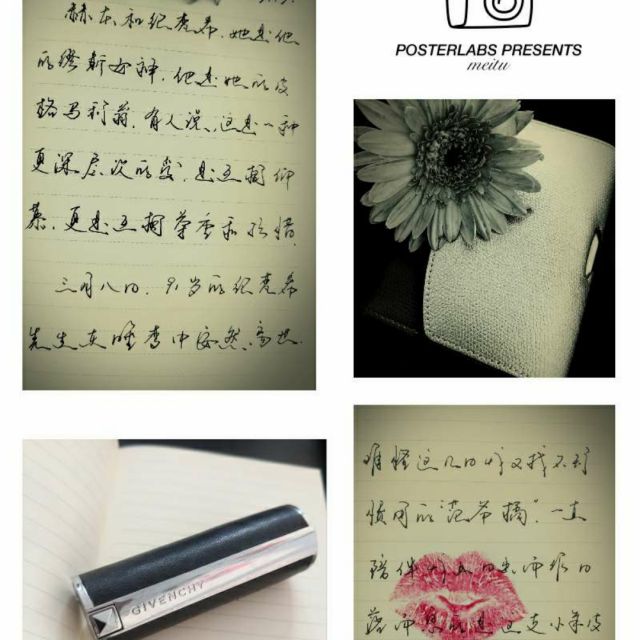 赫本和纪梵希,她是他
的缪斯女神,他是她的皮
格马利翁,有人说,这是一种
更深层次的爱,是互相仰
慕,更是互相尊重和珍惜.
三月八日,91岁的纪梵希
先生在睡梦中安然离世.
POSTERLABS PRESENTS
meitu
GIVENCHY
难怪这几日 又找不到
惯用的 一直
陪伴 日
落 是这支小羊皮